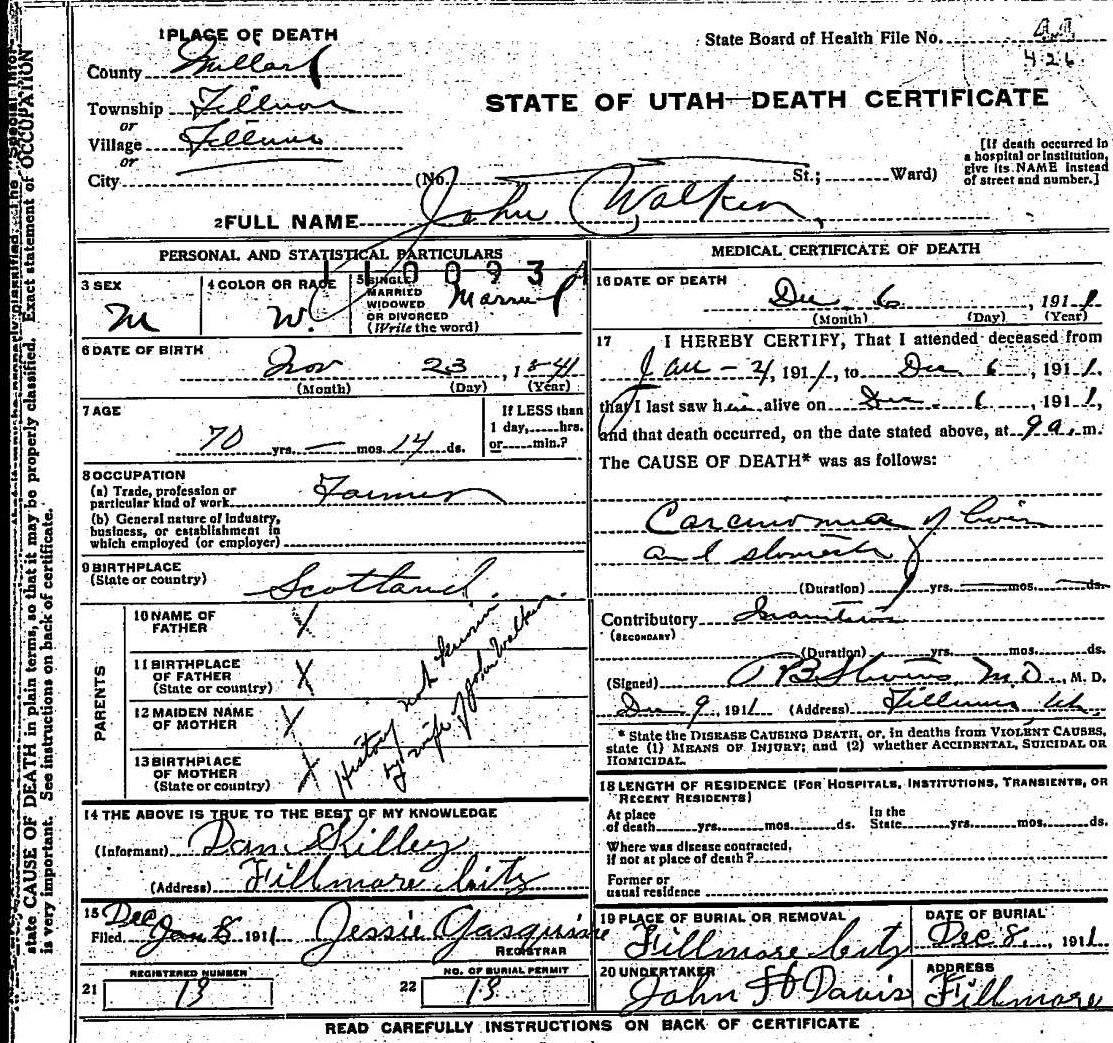 1 PLACE OF DEATH
State Board of Health File No.
426
County Millard
Township Fillmore
or
Village Fillmore
or
STATE OF UTAH—DEATH CERTIFICATE
[If death occurred in
a hospital or institution,
give its NAME instead
of street and number.]
City (No. St.; Ward)
2 FULL NAME John Walker
PERSONAL AND STATISTICAL PARTICULARS
3 SEX
M
4 COLOR OR RACE
W.
5 SINGLE,
MARRIED
WIDOWED
OR DIVORCED
(Write the word)
Married
6 DATE OF BIRTH
Nov 23, 1841
(Month) (Day) (Year)
7 AGE
70 yrs. — mos. 14 ds.
If LESS than
1 day, hrs.
or min.?
8 OCCUPATION
(a) Trade, profession or
particular kind of work Farmer
(b) General nature of industry,
business, or establishment in
which employed (or employer)
9 BIRTHPLACE
(State or country) Scotland
PARENTS
10 NAME OF
FATHER X
11 BIRTHPLACE
OF FATHER
(State or country) X
12 MAIDEN NAME
OF MOTHER X
13 BIRTHPLACE
OF MOTHER
(State or country) X
History not known
by wife of John Walker.
14 THE ABOVE IS TRUE TO THE BEST OF MY KNOWLEDGE
(Informant) Dan Killey
(Address) Fillmore City
15 Dec
Filed Jan 8 1911 Jessie
REGISTRAR
REGISTERED NUMBER
21 13
NO. OF BURIAL PERMIT
22 13
MEDICAL CERTIFICATE OF DEATH
16 DATE OF DEATH
Dec 6, 1911
(Month) (Day) (Year)
17 I HEREBY CERTIFY, That I attended deceased from
Jan - 4, 1911, to Dec 6, 1911,
that I last saw him alive on Dec. 6, 1911,
and that death occurred, on the date stated above, at 9 a. m.
The CAUSE OF DEATH* was as follows:
Carcinoma of liver
and stomach
(Duration) 1 yrs. — mos. — ds.
Contributory Inanition
(SECONDARY)
(Duration) yrs. mos. ds.
(Signed) M.D., M. D.
Dec 9, 1911 (Address) Fillmore, Ut.
* State the DISEASE CAUSING DEATH, or, in deaths from VIOLENT CAUSES,
state (1) MEANS OF INJURY; and (2) whether ACCIDENTAL, SUICIDAL OR
HOMICIDAL.
18 LENGTH OF RESIDENCE (FOR HOSPITALS, INSTITUTIONS, TRANSIENTS, OR
RECENT RESIDENTS)
At place
of death yrs. mos. ds.
In the
State yrs. mos. ds.
Where was disease contracted,
if not at place of death?
Former or
usual residence
19 PLACE OF BURIAL OR REMOVAL
Fillmore City
DATE OF BURIAL
Dec 8, 1911
20 UNDERTAKER
John Davis
ADDRESS
Fillmore
READ CAREFULLY INSTRUCTIONS ON BACK OF CERTIFICATE
state CAUSE OF DEATH in plain terms, so that it may be properly classified. Exact statement of OCCUPATION
is very important. See instructions on back of certificate.